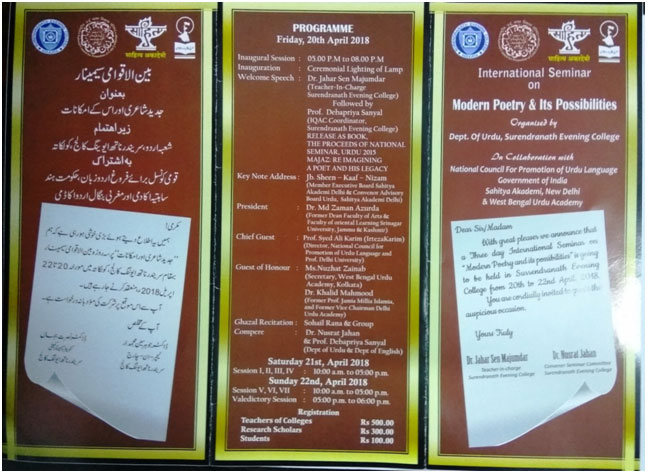 بین الاقوامی سیمینار
بعنوان
جدید شاعری اور اس کے امکانات
زیر اہتمام
شعبہ اردو، سریندر ناتھ ایوننگ کالج، کولکاتہ
بہ اشتراک
قومی کونسل برائے فروغ اردو زبان، حکومت ہند
ساہتیہ اکادمی اور مغربی بنگال اردو اکاڈمی
PROGRAMME
Friday, 20th April 2018
Inaugural Session : 05.00 P.M to 08.00 P.M
Inauguration : Ceremonial Lighting of Lamp
Welcome Speech : Dr. Jahar Sen Majumdar
(Teacher-In-Charge
Surendranath Evening College)
Followed by
Prof. Debapriya Sanyal
(IQAC Coordinator,
Surendranath Evening College)
RELEASE AS BOOK,
THE PROCEEDS OF NATIONAL
SEMINAR, URDU 2015
MAJAZ: RE IMAGINING
A POET AND HIS LEGACY
Key Note Address : Jb. Sheen – Kaaf – Nizam
(Member Executive Board Sahitya
Akademi Delhi & Convenor Advisory
Board Urdu, Sahitya Akademi Delhi)
President : Dr. Md Zaman Azurda
(Former Dean Faculty of Arts &
Faculty of oriental Learning Srinagar
University, Jammu & Kashmir)
Chief Guest : Prof. Syed Ali Karim (IrtezaKarim)
(Director, National Council for
Promotion of Urdu Language and
Prof. Delhi University)
Guest of Honour : Ms.Nuzhat Zainab
(Secretary, West Bengal Urdu
Academy, Kolkata)
Dr. Khalid Mahmood
(Former Prof. Jamia Millia Islamia,
and Former Vice Chairman Delhi
Urdu Academy)
Ghazal Recitation : Sohail Rana & Group
Compere : Dr. Nusrat Jahan
& Prof. Debapriya Sanyal
(Dept of Urdu & Dept of English)
Saturday 21st, April 2018
Session I, II, III, IV : 10:00 a.m to 05:00 p.m.
Sunday 22nd, April 2018
Session V, VI, VII : 10:00 a.m to 05:00 p.m.
Valedictory Session : 05:00 p.m. to 06:00 p.m.
Registration
Teachers of Colleges Rs 500.00
Research Scholars Rs 300.00
Students Rs 100.00
साहित्य अकादेमी
International Seminar
on
Modern Poetry & Its Possibilities
Organised by
Dept. Of Urdu, Surendranath Evening College
In Collaboration with
National Council For Promotion of Urdu Language
Government of India
Sahitya Akademi, New Delhi
& West Bengal Urdu Academy
Dear Sir/Madam
With great pleasure we announce that
a Three day International Seminar on
"Modern Poetry and its possibilities" is going
to be held in Surrendranath Evening
College from 20th to 22nd April, 2018.
You are cordially invited to the
auspicious occasion.
Yours Truly
Dr. Jahar Sen Majumdar
Teacher-in-charge
Surendranath Evening College
Dr. Nusrat Jahan
Convenor Seminar Committee
Surendranath Evening College